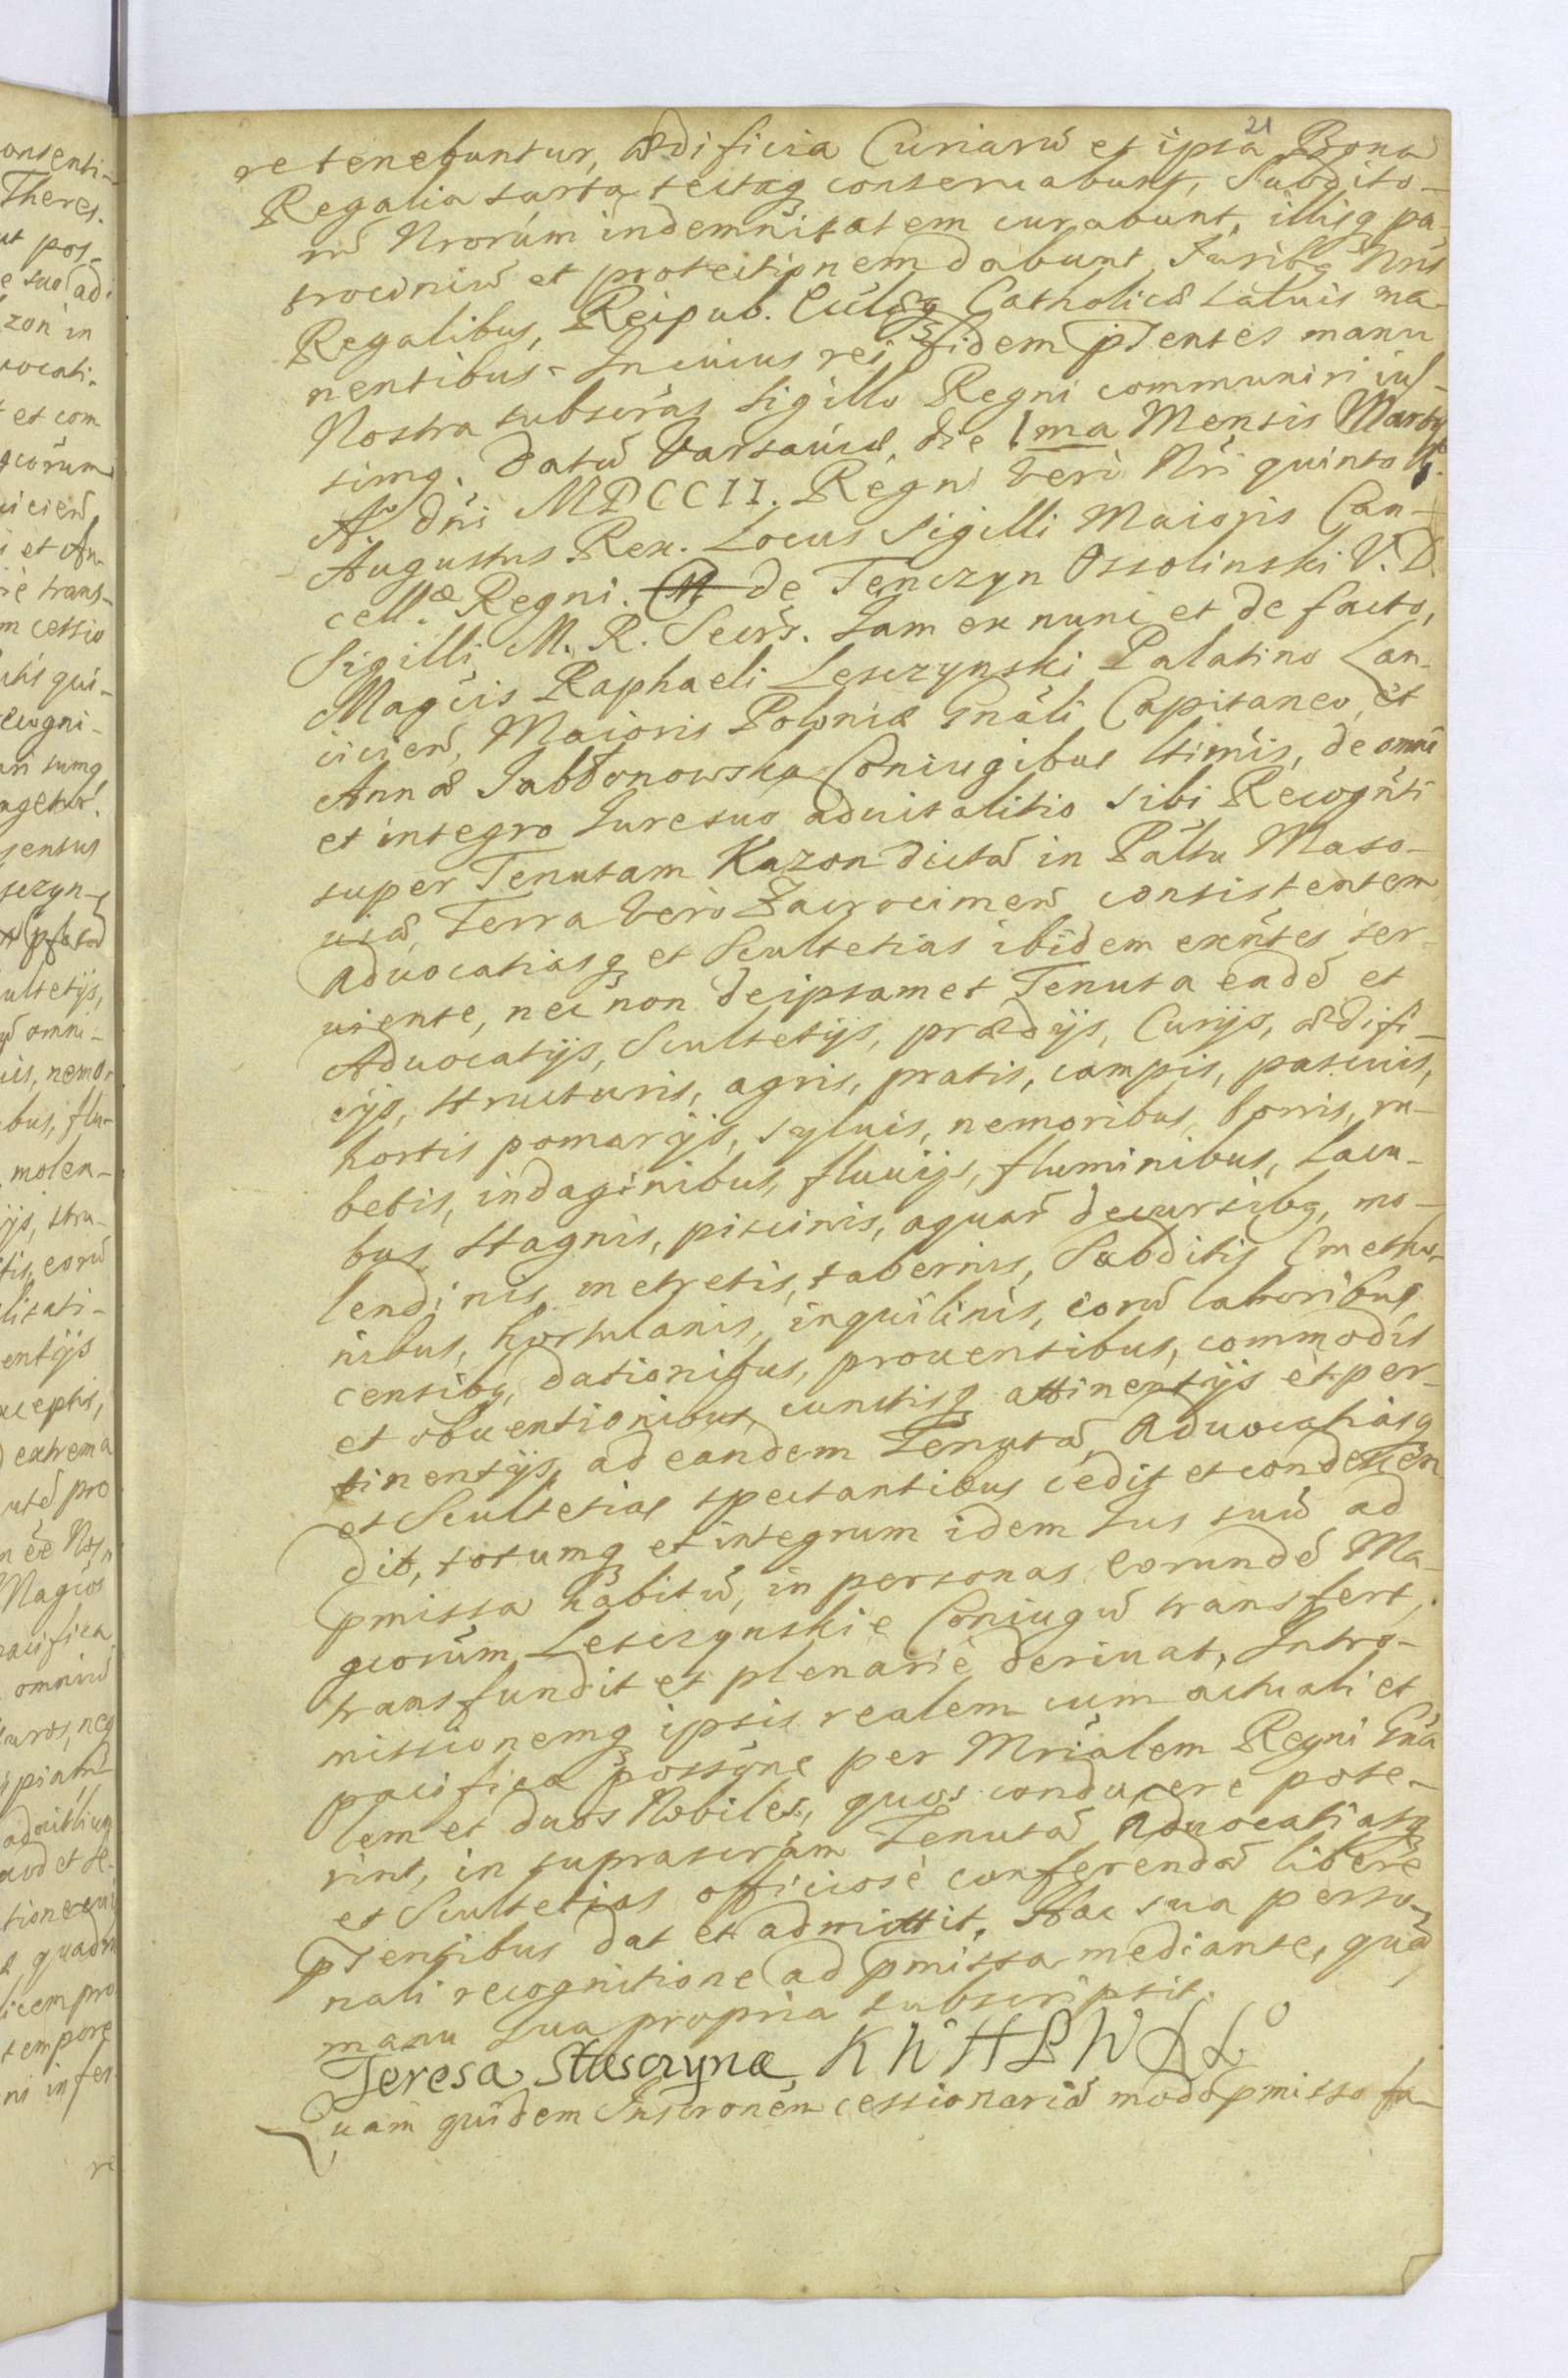 21
re tenebuntur, ædificia Curiarū et ipsa Bona
Regalia sarta tectaq conseruabunt, Subdito-
rū Nrorum indemnitatem curabunt, illisq pa-
trociniū et protectionem dabunt, Juribq Nris
Regalibus, Reipub. Ecclæq Catholicæ saluis ma-
nentibus. In cuius rei fidem pntes manu
Nostra subscras Sigillo Regni communiri ius-
simq. Datū Varsauiæ, die 1ma Mensis Martij
Ao dni MDCCII. Regni vero Nri quinto Ao.
Augustus Rex. Locus Sigilli Maioris Can-
cell.æ Regni. de Tenczyn Ossolinski V. D.
Sigilli M. R. Secrs. Jam ex nunc et de facto,
Magcis Raphaeli Lesczynski Palatino Lan-
cicien, Maioris Poloniæ Gnali Capitaneo, et
Annæ Jabłonowska Coniugibus ltimis, de omni
et integro Jure suo aduitalitio sibi Recognti
super Tenutam Kazon dictā in Pałtu Maso-
uiæ, Terra vero Zacrocimen consistentem
Aduocatiasq et Scultetias ibidem exntes ser-
uiente, nec non de ipsamet Tenuta eadē et
Aduocatijs, Scultetijs, prædijs, Curijs, ædifi-
cijs, structuris, agris, pratis, campis, pascuis,
hortis pomarijs, syluis, nemoribus, borris, ru-
betis, indaginibus, fluuijs, fluminibus, Lacu-
bus, stagnis, piscinis, aquar decursibq, mo-
lendinis, metretis, tabernis, Subditis Cmetho-
nibus, hortulanis, inquilinis, eorū laboribus,
censibq, dationibus, prouentibus, commodis
et obuentionibus, cunctisq attinentijs et per-
tinentijs, ad eandem Tenutā, Aduocatiasq
et Scultetias spectantibus cedit et condescen
dit, totumq et integrum idem Jus suū ad
pmissa habitū, in personas eorundē Ma-
gcorum Lesczynskie Coniugū transfert,
transfundit et plenarie deriuat, Intro-
missionemq ipsis realem cum actuali et
pacifica possone per Mrialem Regni Gna
lem et duos Nobiles, quos conducere pote-
rint, in suprascram Tenutā Aduocatiasq
et Scultetias officiose conferendā libere
pntibus dat et admittit, Hac sua perso-
nali recognitione ad pmissa mediante, quā
manu sua propria subscripsit.
Teresa Stesczynæ K W H L W
Quam quidem Inscronem cessionariā modo pmisso fa-